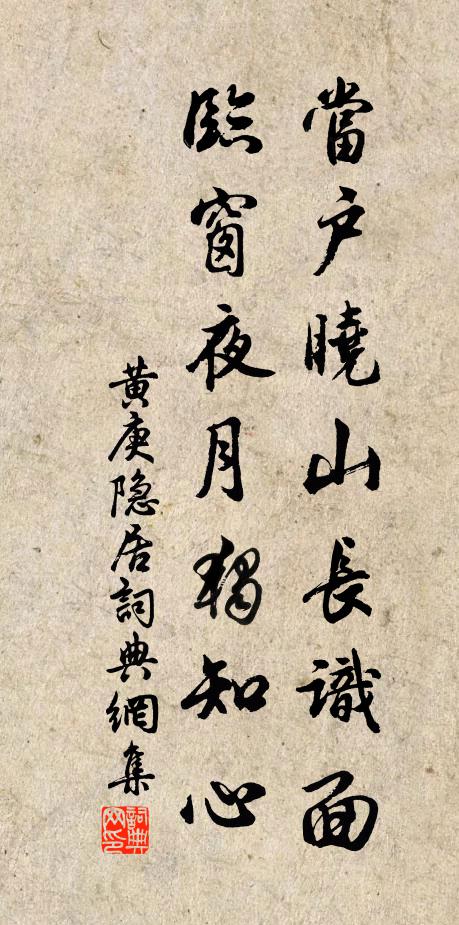 當户曉山長識面
臨窗夜月獨知心
黄庚隐居詞典網集
詞典网印